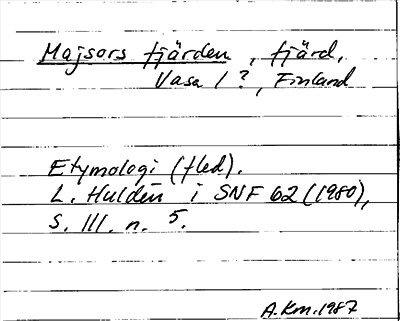 Majsors fjärden, fjärd,
Vasa l ?, Finland
Etymologi (fled).
L. Huldén i SNF 62 (1980),
S. 111. n. 5.
A.Km.1987